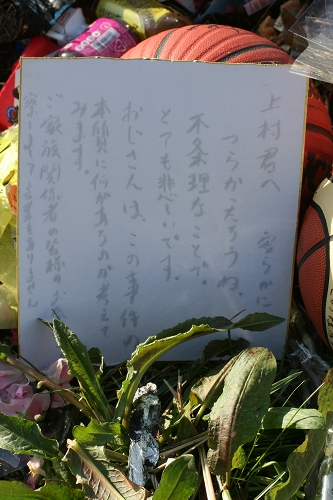 上村君へ 安らかに
つらかったろうね。
不条理なことで、
とても悲しいです。
おじさんは、この事件の
本質に何があるのか考えて
みます。
ご家族関係者の皆様の
察しますと言葉もありません